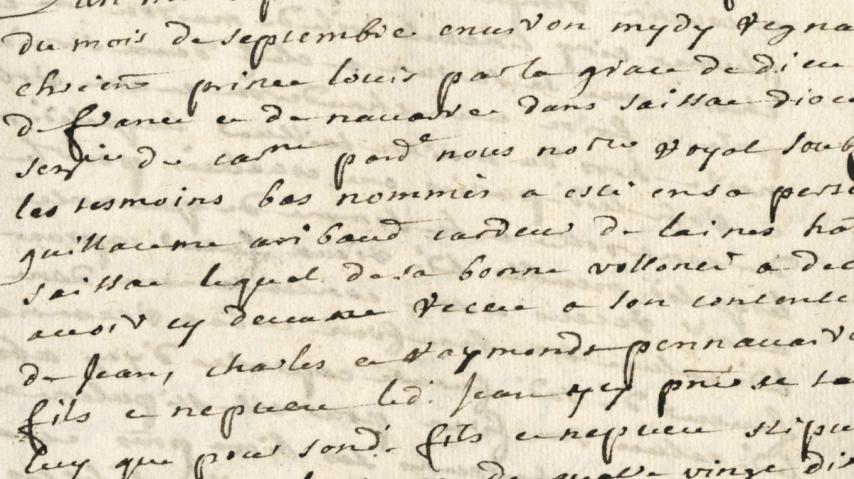 du mois de septembre environ mydy regna
chrien prince louis par la grace de dieu
de france et de navarre dans saissac dioce
sensie de carne pard^e nous no^re royal soub
les tesmoins bas nommes a esté en sa perso
guillaume aribaud cardeur de laines ha
saissac lequel de sa bonne vollonté a dec
avoir cy devant receu a son contente
de Jean, charles et Raymonds pennavaire
fils et nepveu led. Jean icy pnt se ta
luy que pour sond. fils et nepveu stipu
de quatre vingt dix